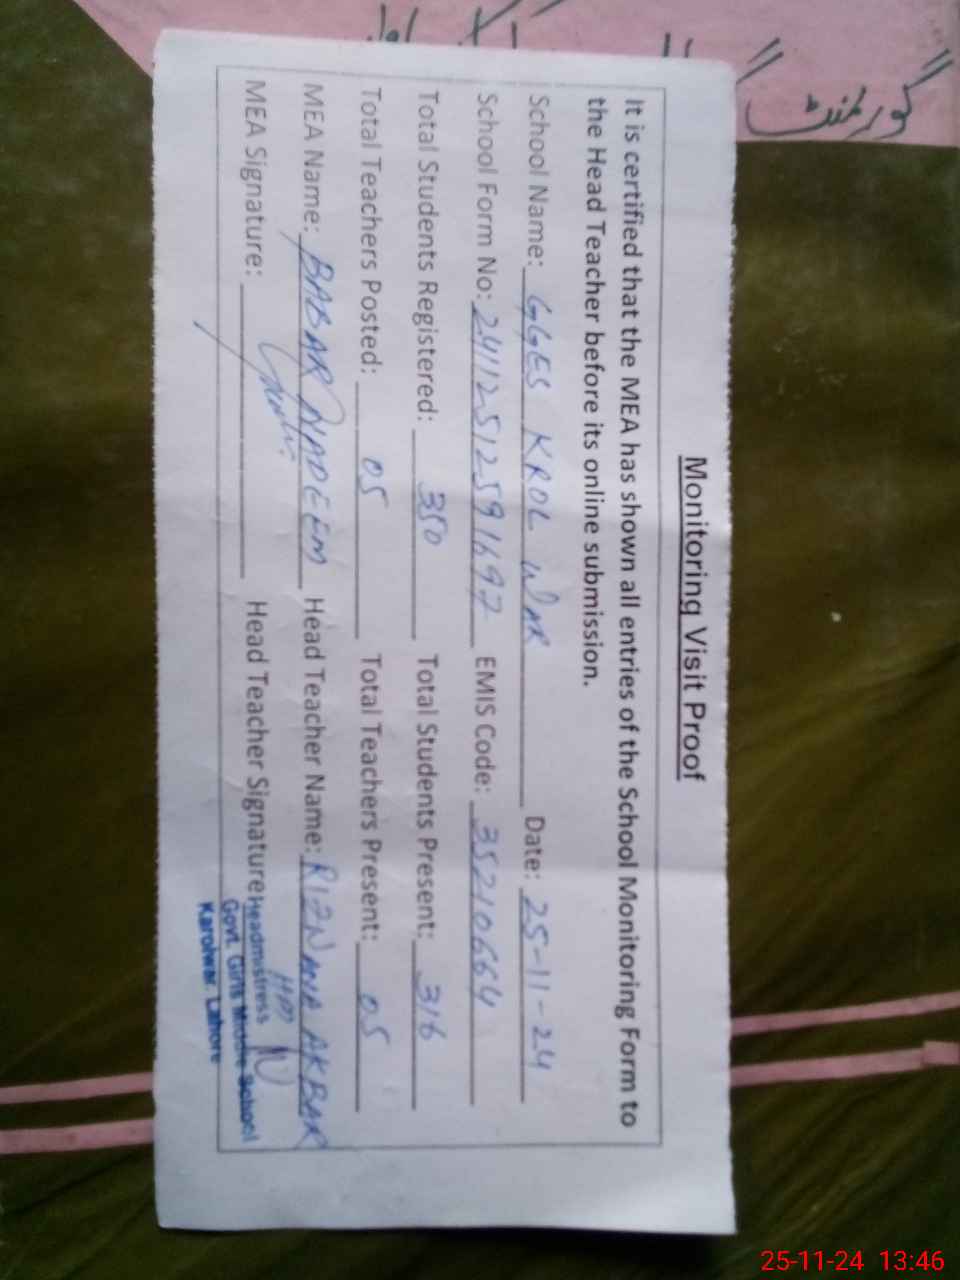 گورنمنٹ
Monitoring Visit Proof
It is certified that the MEA has shown all entries of the School Monitoring Form to
the Head Teacher before its online submission.
School Name: GGES KROL WAR Date: 25-11-24
School Form No: 2411251259 1697 EMIS Code: 35210664
Total Students Registered: 350 Total Students Present: 316
Total Teachers Posted: 05 Total Teachers Present: 05
MEA Name: BABAR NADEEM Head Teacher Name: RIZWANA AKBAR
MEA Signature: Head Teacher Signature:
Headmistress
Govt. Girls Middle School
Karolwar Lahore
25-11-24 13:46